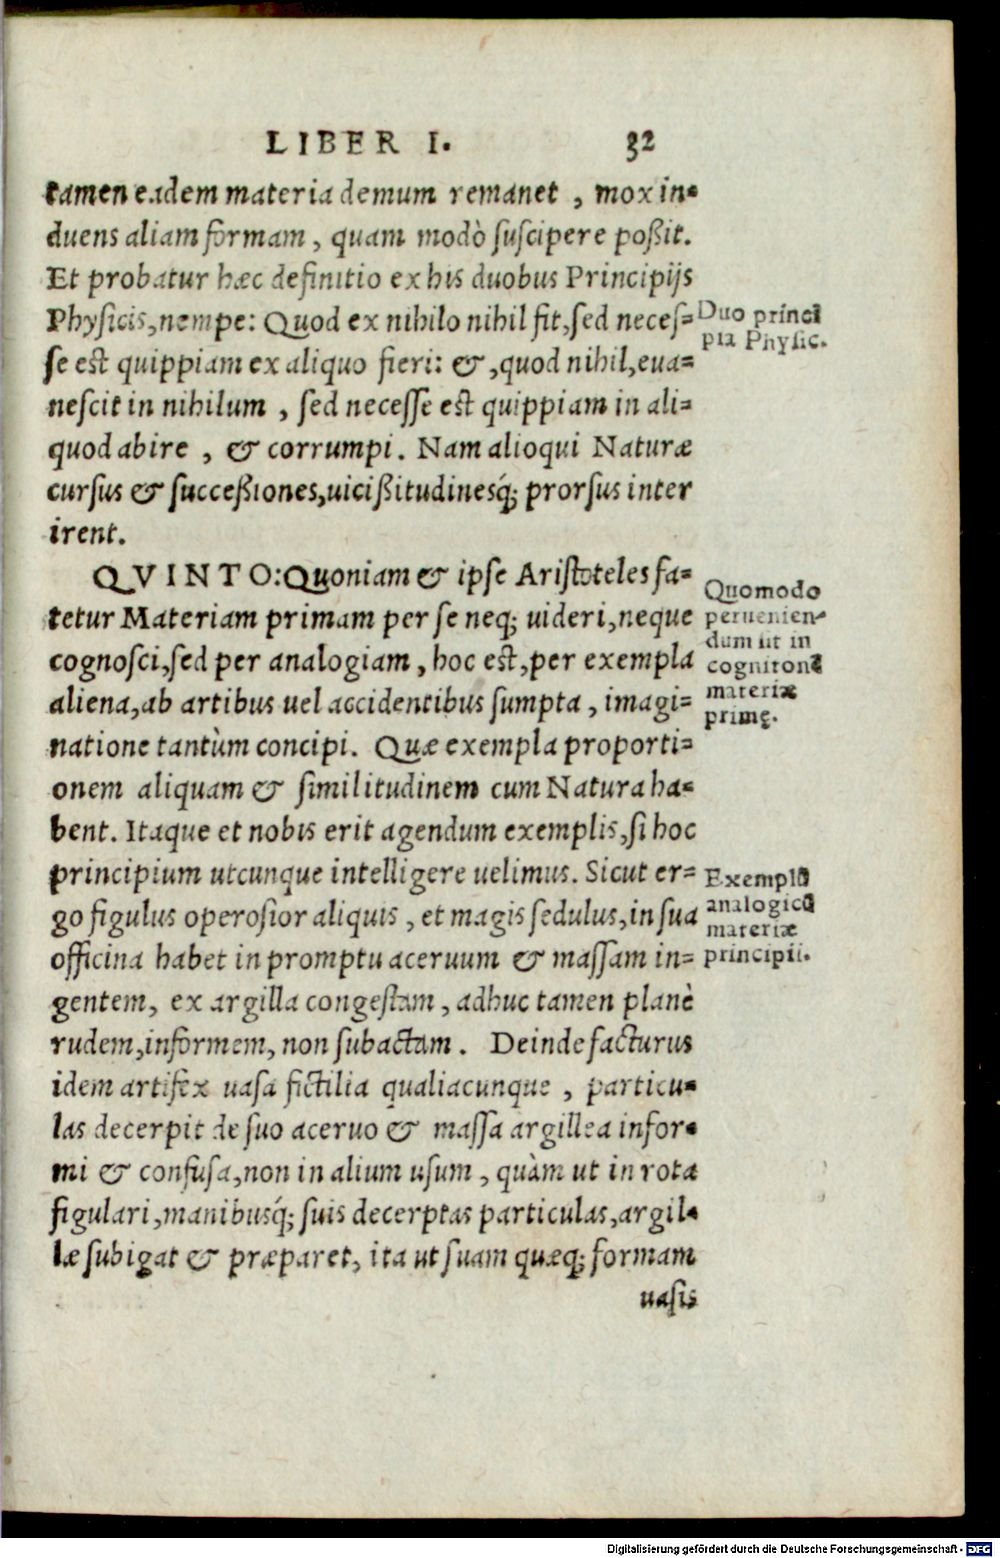 LIBER I. 32
tamen eadem materia demum remanet , mox in-
duens aliam formam , quam modò suscipere poßit.
Et probatur hæc definitio ex his duobus Principijs
Physicis,nempe: Quod ex nihilo nihil fit,sed neces-
se est quippiam ex aliquo fieri: & ,quod nihil,eua-
nescit in nihilum , sed necesse est quippiam in ali-
quod abire , & corrumpi. Nam alioqui Naturæ
cursus & succeßiones,uicißitudinesq́; prorsus inter
irent.
Duo princi
pia Physic.
QVINTO:Quoniam & ipse Aristoteles fa-
tetur Materiam primam per se neq; uideri,neque
cognosci,sed per analogiam , hoc est,per exempla
aliena,ab artibus uel accidentibus sumpta , imagi-
natione tantùm concipi. Quæ exempla proporti-
onem aliquam & similitudinem cum Natura ha-
bent. Itaque et nobis erit agendum exemplis,si hoc
principium utcunque intelligere uelimus. Sicut er-
go figulus operosior aliquis , et magis sedulus,in sua
officina habet in promptu aceruum & massam in-
gentem, ex argilla congestam , adhuc tamen planè
rudem,informem, non subactam . Deinde facturus
idem artifex uasa fictilia qualiacunque , particu-
las decerpit de suo aceruo & massa argillea infor-
mi & confusa,non in alium usum , quàm ut in rota
figulari,manibusq́; suis decerptas particulas,argil-
læ subigat & præparet, ita ut suam quæq; formam
uasis
Quomodo
peruenien-
dum ut in
cognitionē
materiæ
primę.
Exemplū
analogicū
materiæ
principii.
Digitalisierung gefördert durch die Deutsche Forschungsgemeinschaft - DFG